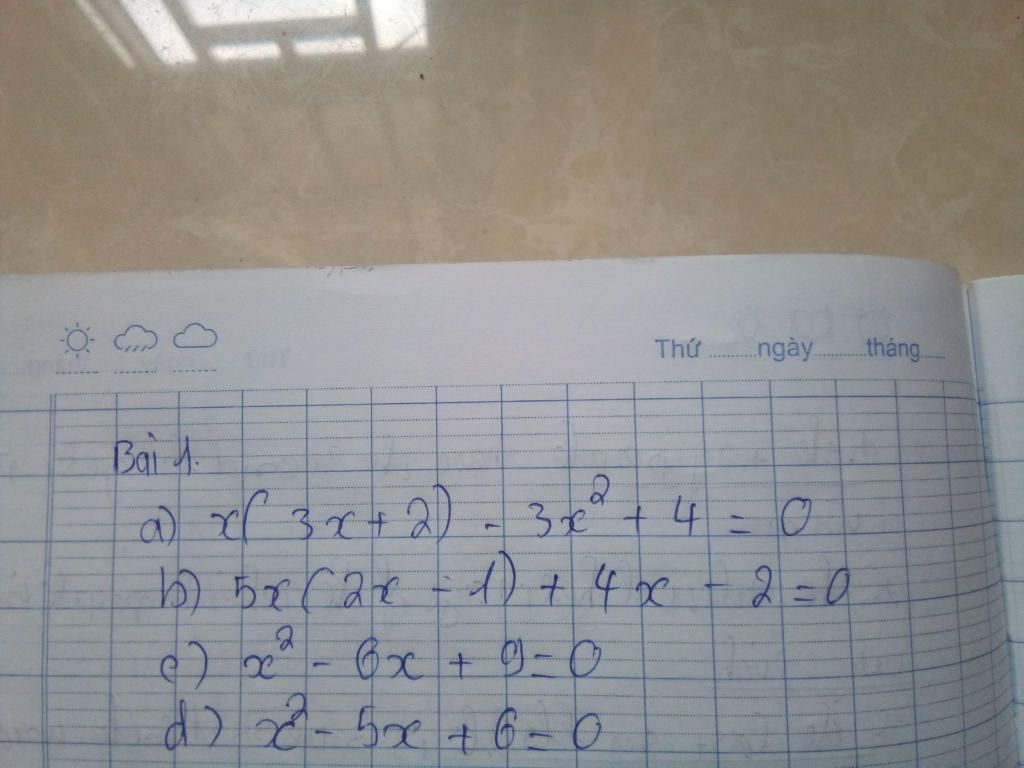 Thứ ........ngày........tháng.....
Bài 1.
a) x( 3x + 2) - 3x² + 4 = 0
b) 5x( 2x - 1) + 4x - 2 = 0
c) x² - 6x + 9 = 0
d) x² - 5x + 6 = 0